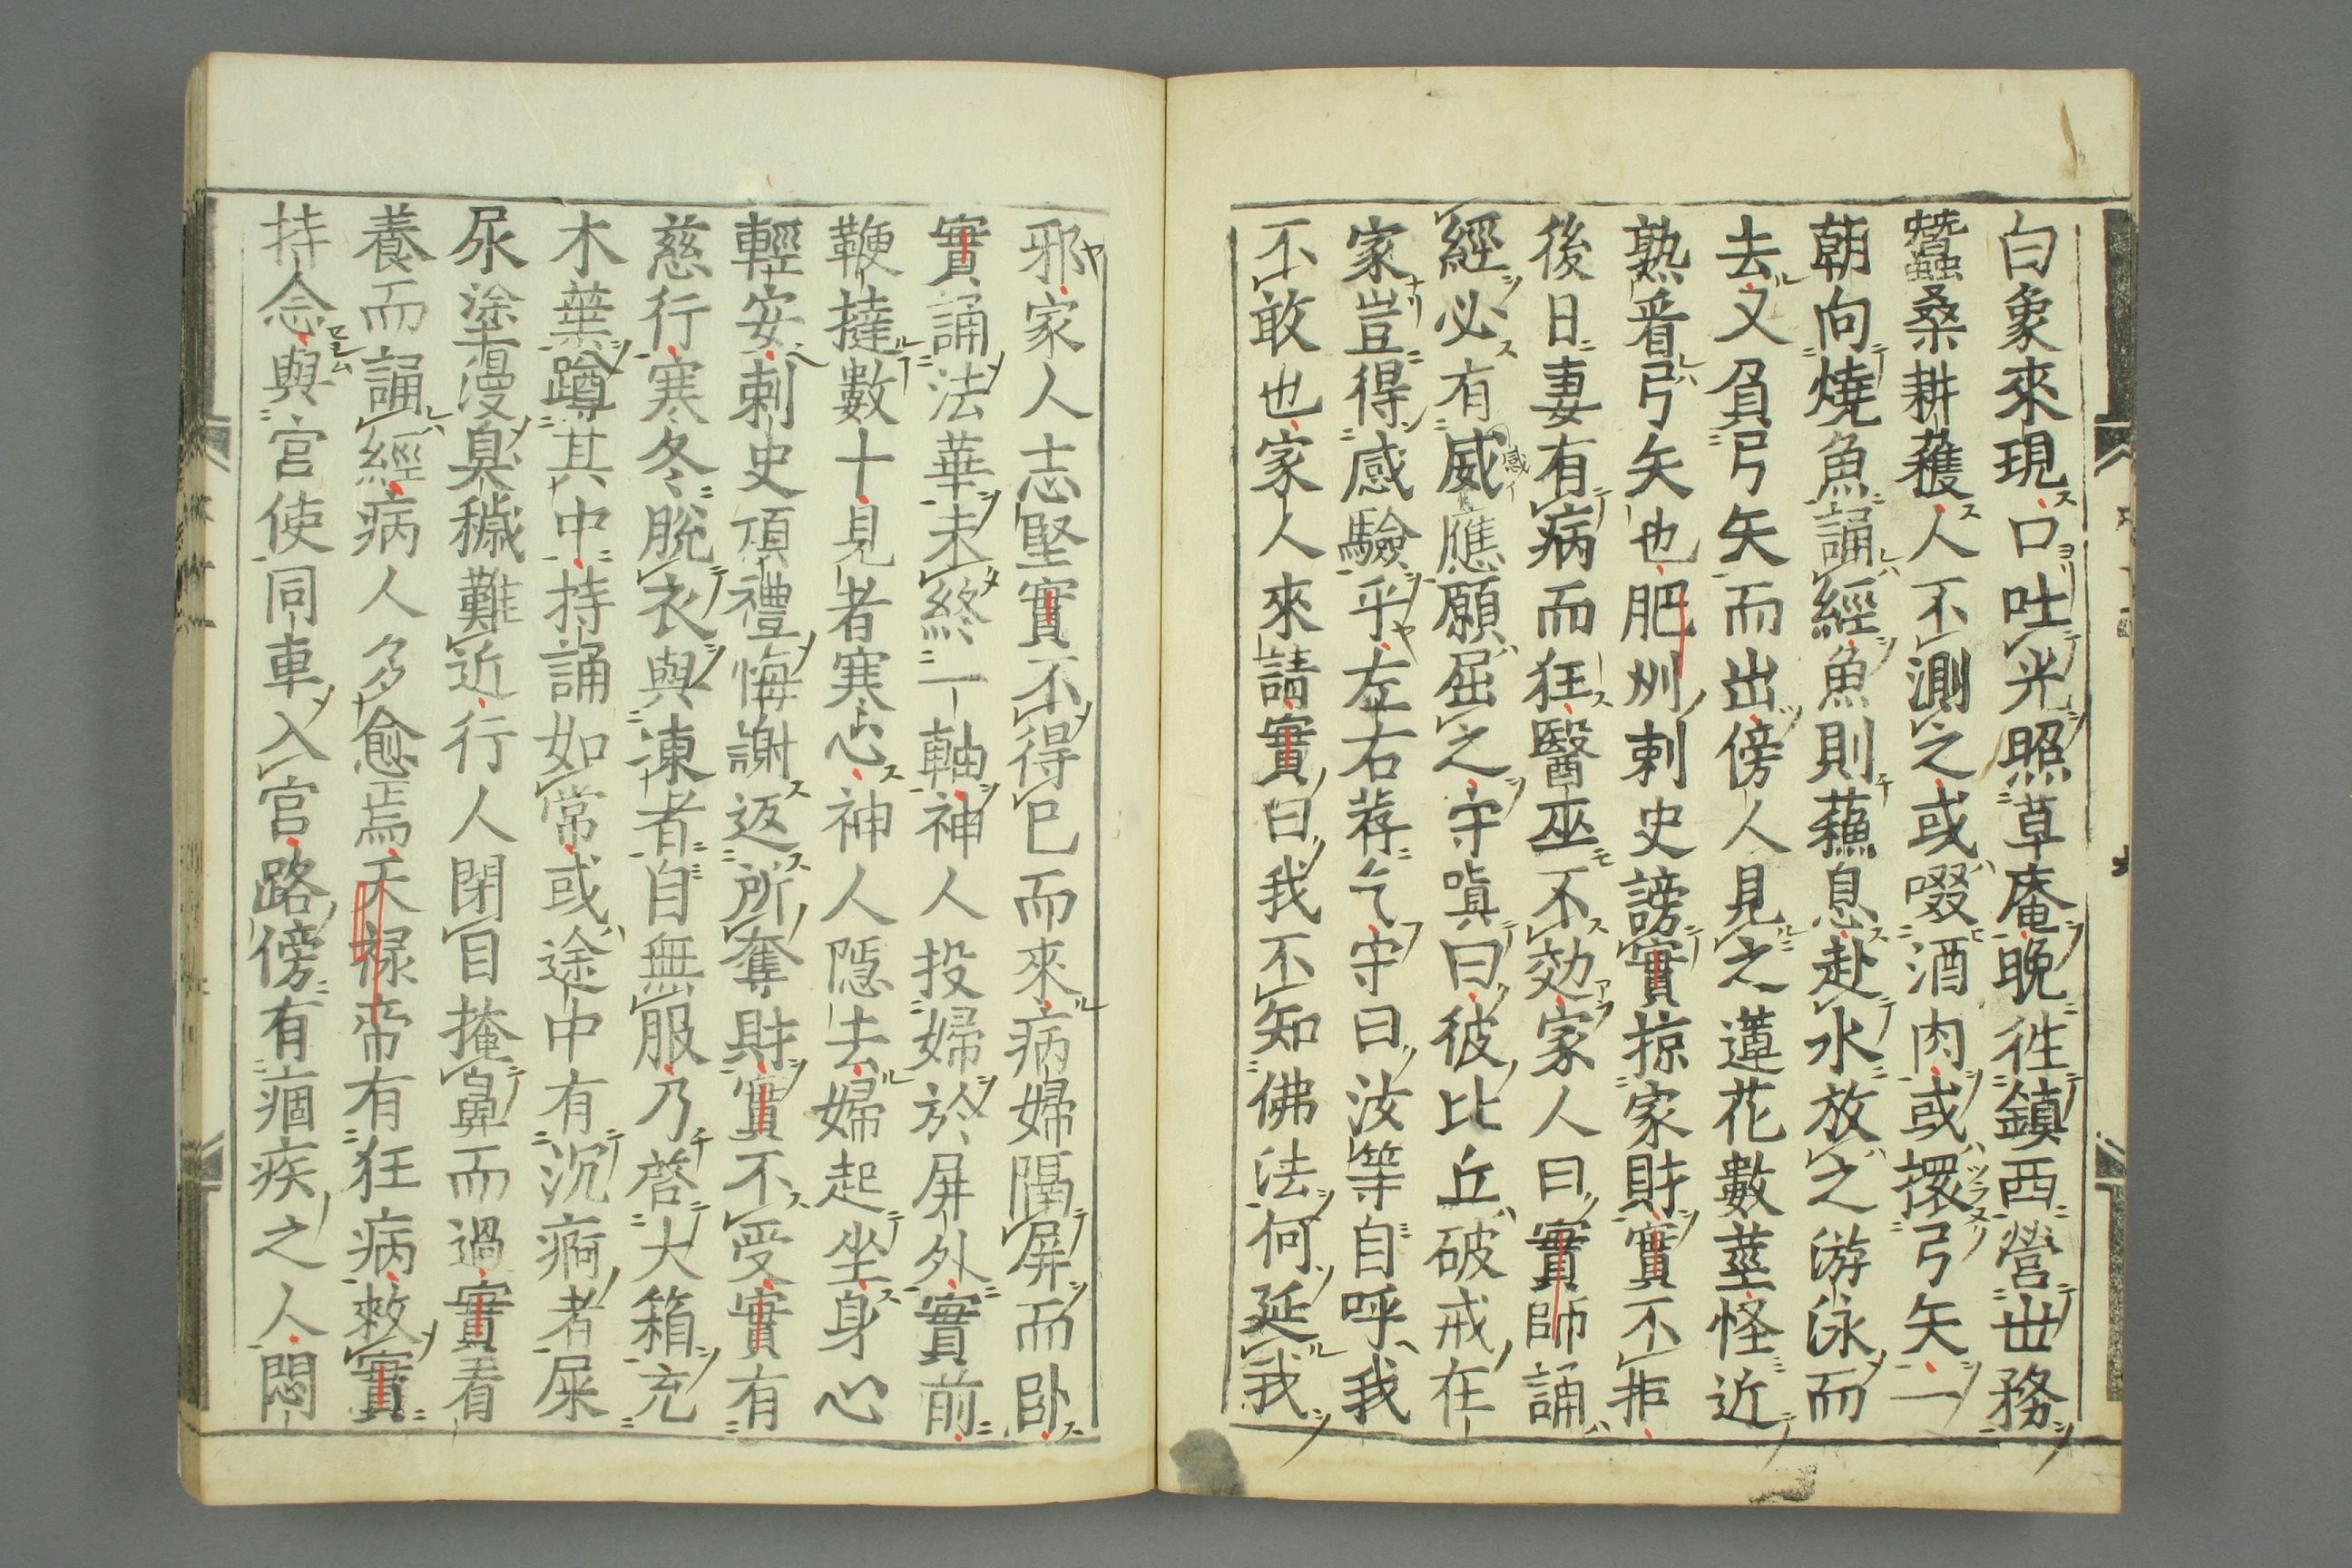 白象來現口吐光照草庵晩徃鎮西營世務
蠶桑耕穫人不測之或啜酒肉或擐弓矢一
朝向燒魚誦經魚則蘓息赴水放之游泳而
去又負弓矢而出傍人見之蓮花數莖怪近
熟看弓矢也肥州刺史謗實掠家財實不拒
後日妻有病而狂醫巫不効家人曰實師誦
經必有威應願屈之守嗔曰彼比丘破戒在
家豈得感驗乎左右荐乞守曰汝等自呼我
不敢也家人來請實曰我不知佛法何延我
邪家人志堅實不得已而來病婦隔屏而臥
實誦法華未終一軸神人投婦於屏外實前
鞭撻數十見者寒心神人隱去婦起坐身心
輕安刺史頂禮悔謝返所奪財實不受實有
慈行寒冬脫衣與凍者自無服乃啓大箱充
木葉蹲其中持誦如常或途中有沉痾者屎
尿塗漫臭穢難近行人閉目掩鼻而過實看
養而誦經病人多愈焉天禄帝有狂病敕實
持念與官使同車入宮路傍有痼疾之人悶